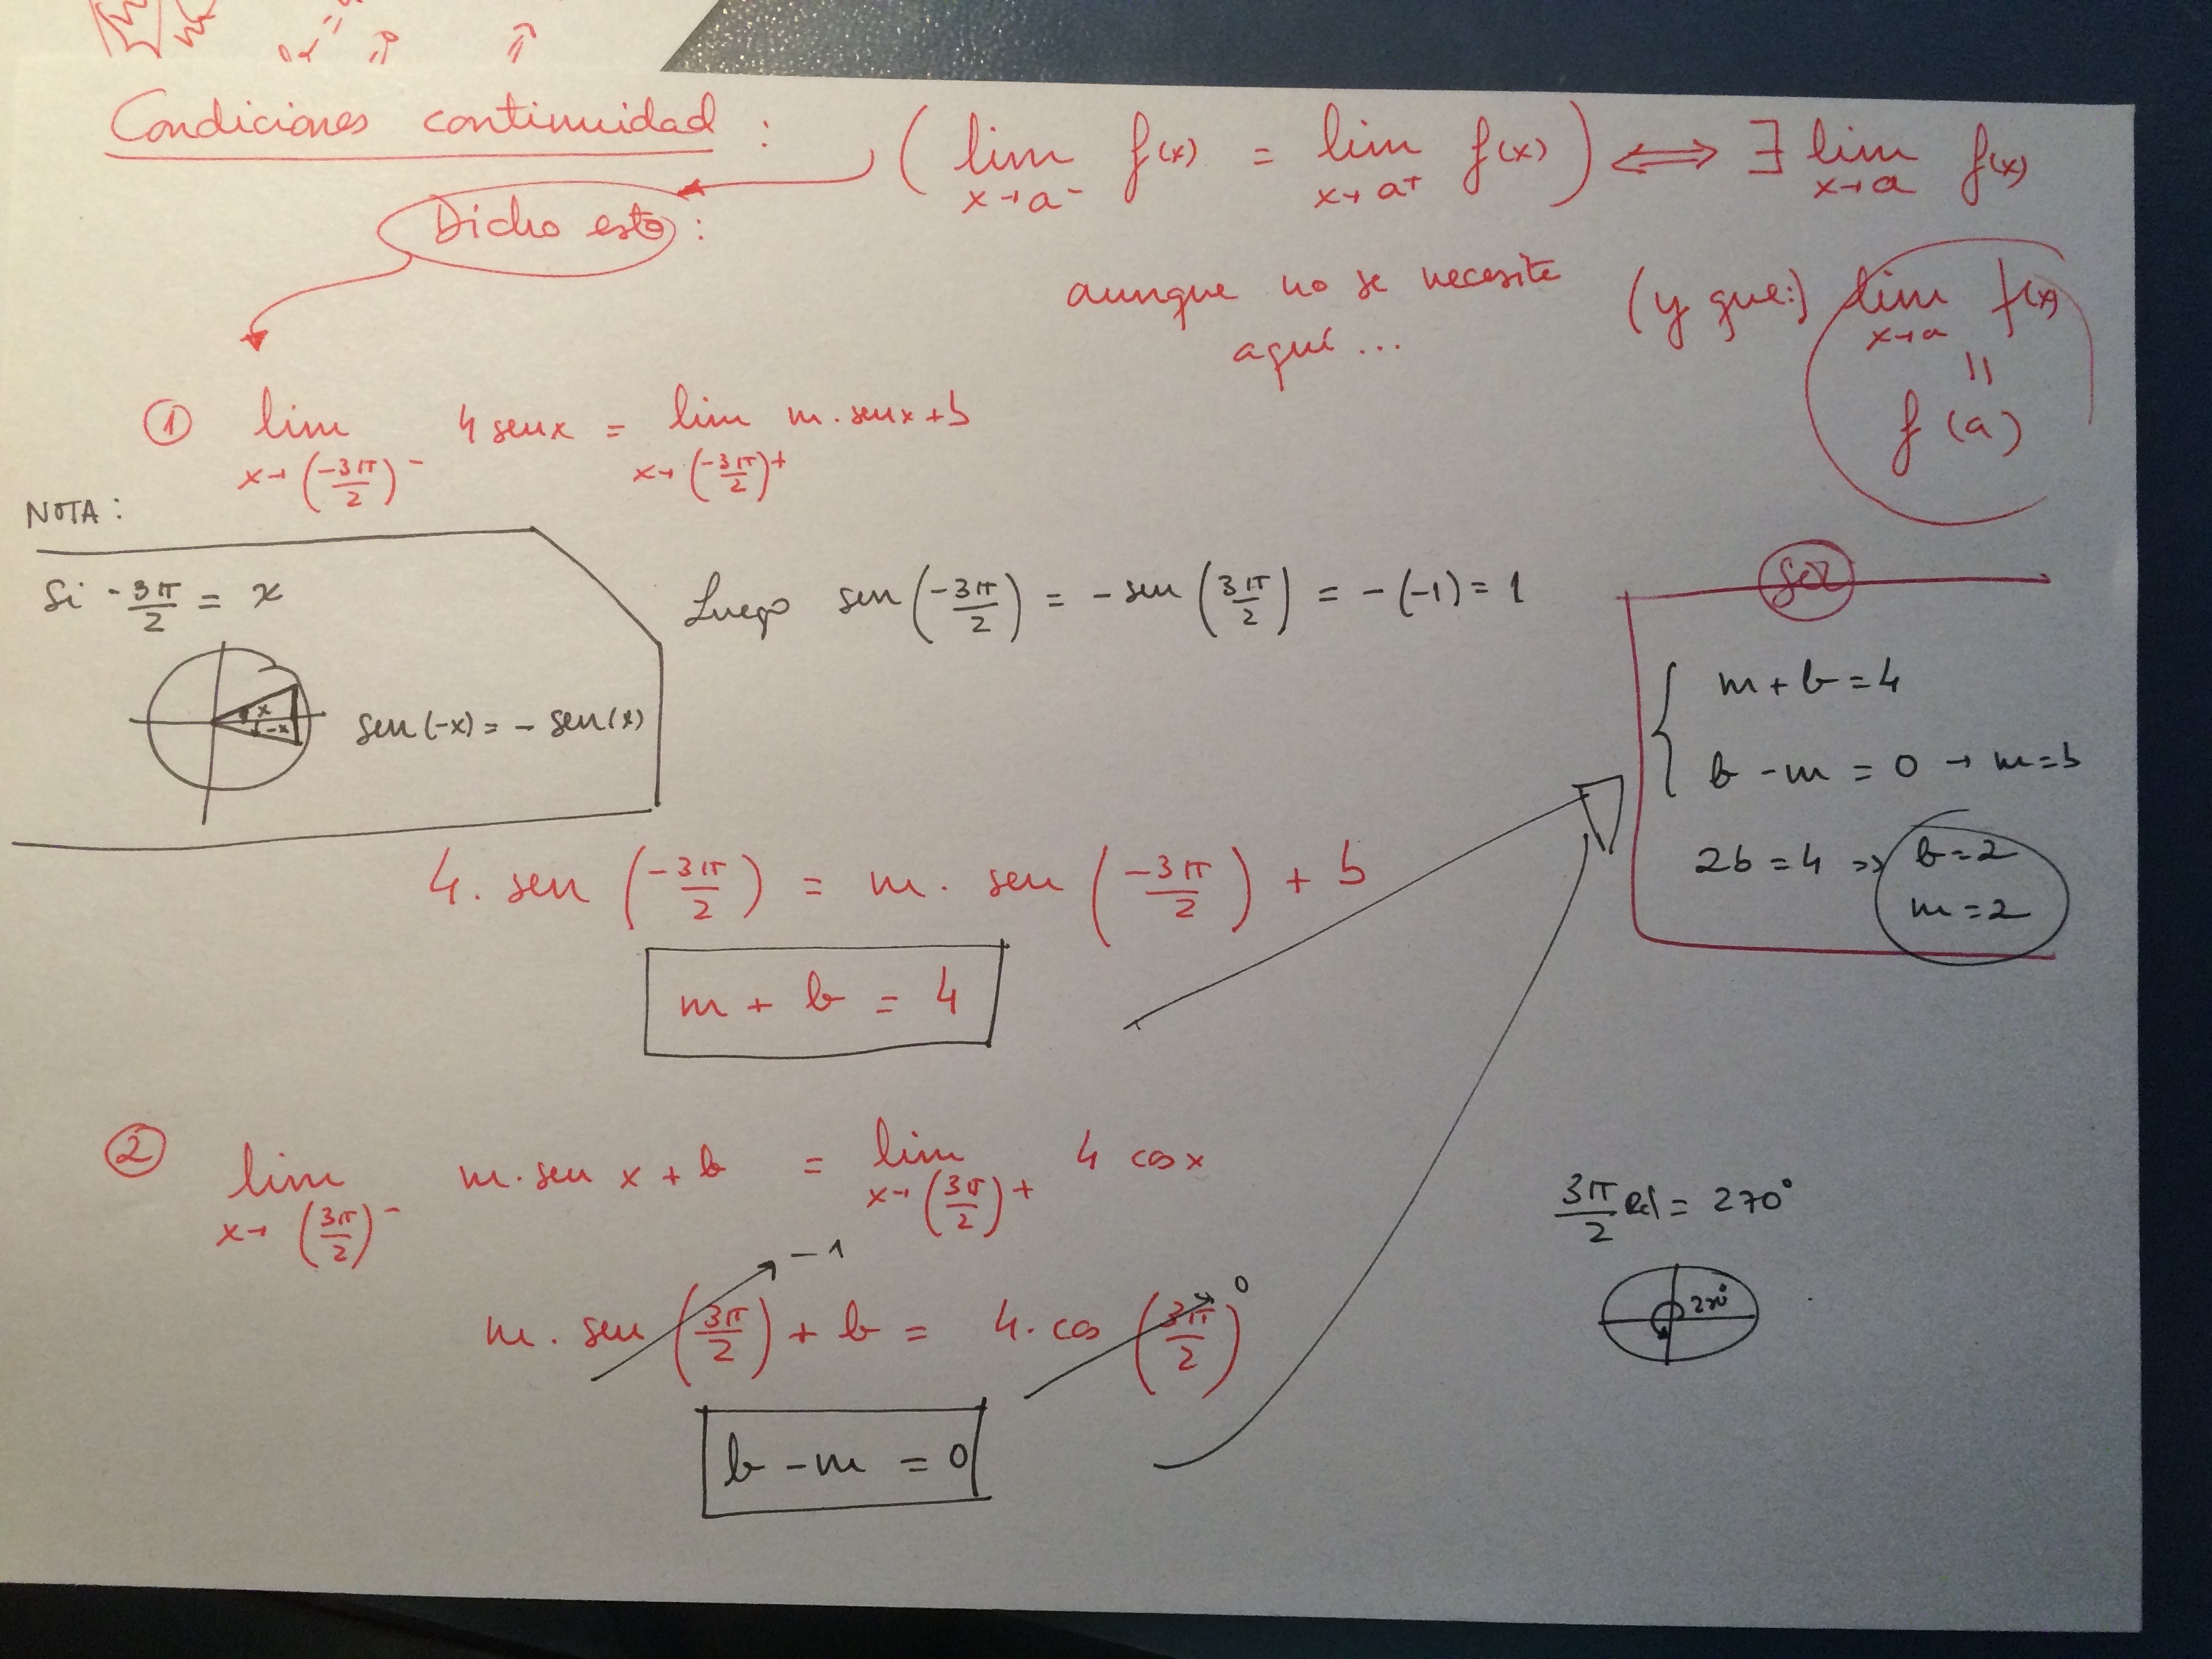 Condiciones continuidad : ( lim x→a⁻ f(x) = lim x→a⁺ f(x) ) ⟺ ∃ lim x→a f(x)
Dicho esto :
aunque no se necesite (y que:) lim x→a f(x)
aquí ... =
f (a)
① lim x→(-3π/2)⁻ 4 senx = lim x→(-3π/2)⁺ m. senx + b
NOTA :
Si -3π/2 = x
x
-x
sen(-x) = - sen(x)
Luego sen(-3π/2) = - sen(3π/2) = - (-1) = 1
4. sen (-3π/2) = m. sen (-3π/2) + b
m + b = 4
Sol
m + b = 4
b - m = 0 → m = b
2b = 4 => b = 2
m = 2
② lim x→(3π/2)⁻ m. sen x + b = lim x→(3π/2)⁺ 4 cos x
-1
0
m. sen (3π/2) + b = 4. cos (3π/2)
b - m = 0
3π/2 Rd = 270°
270°